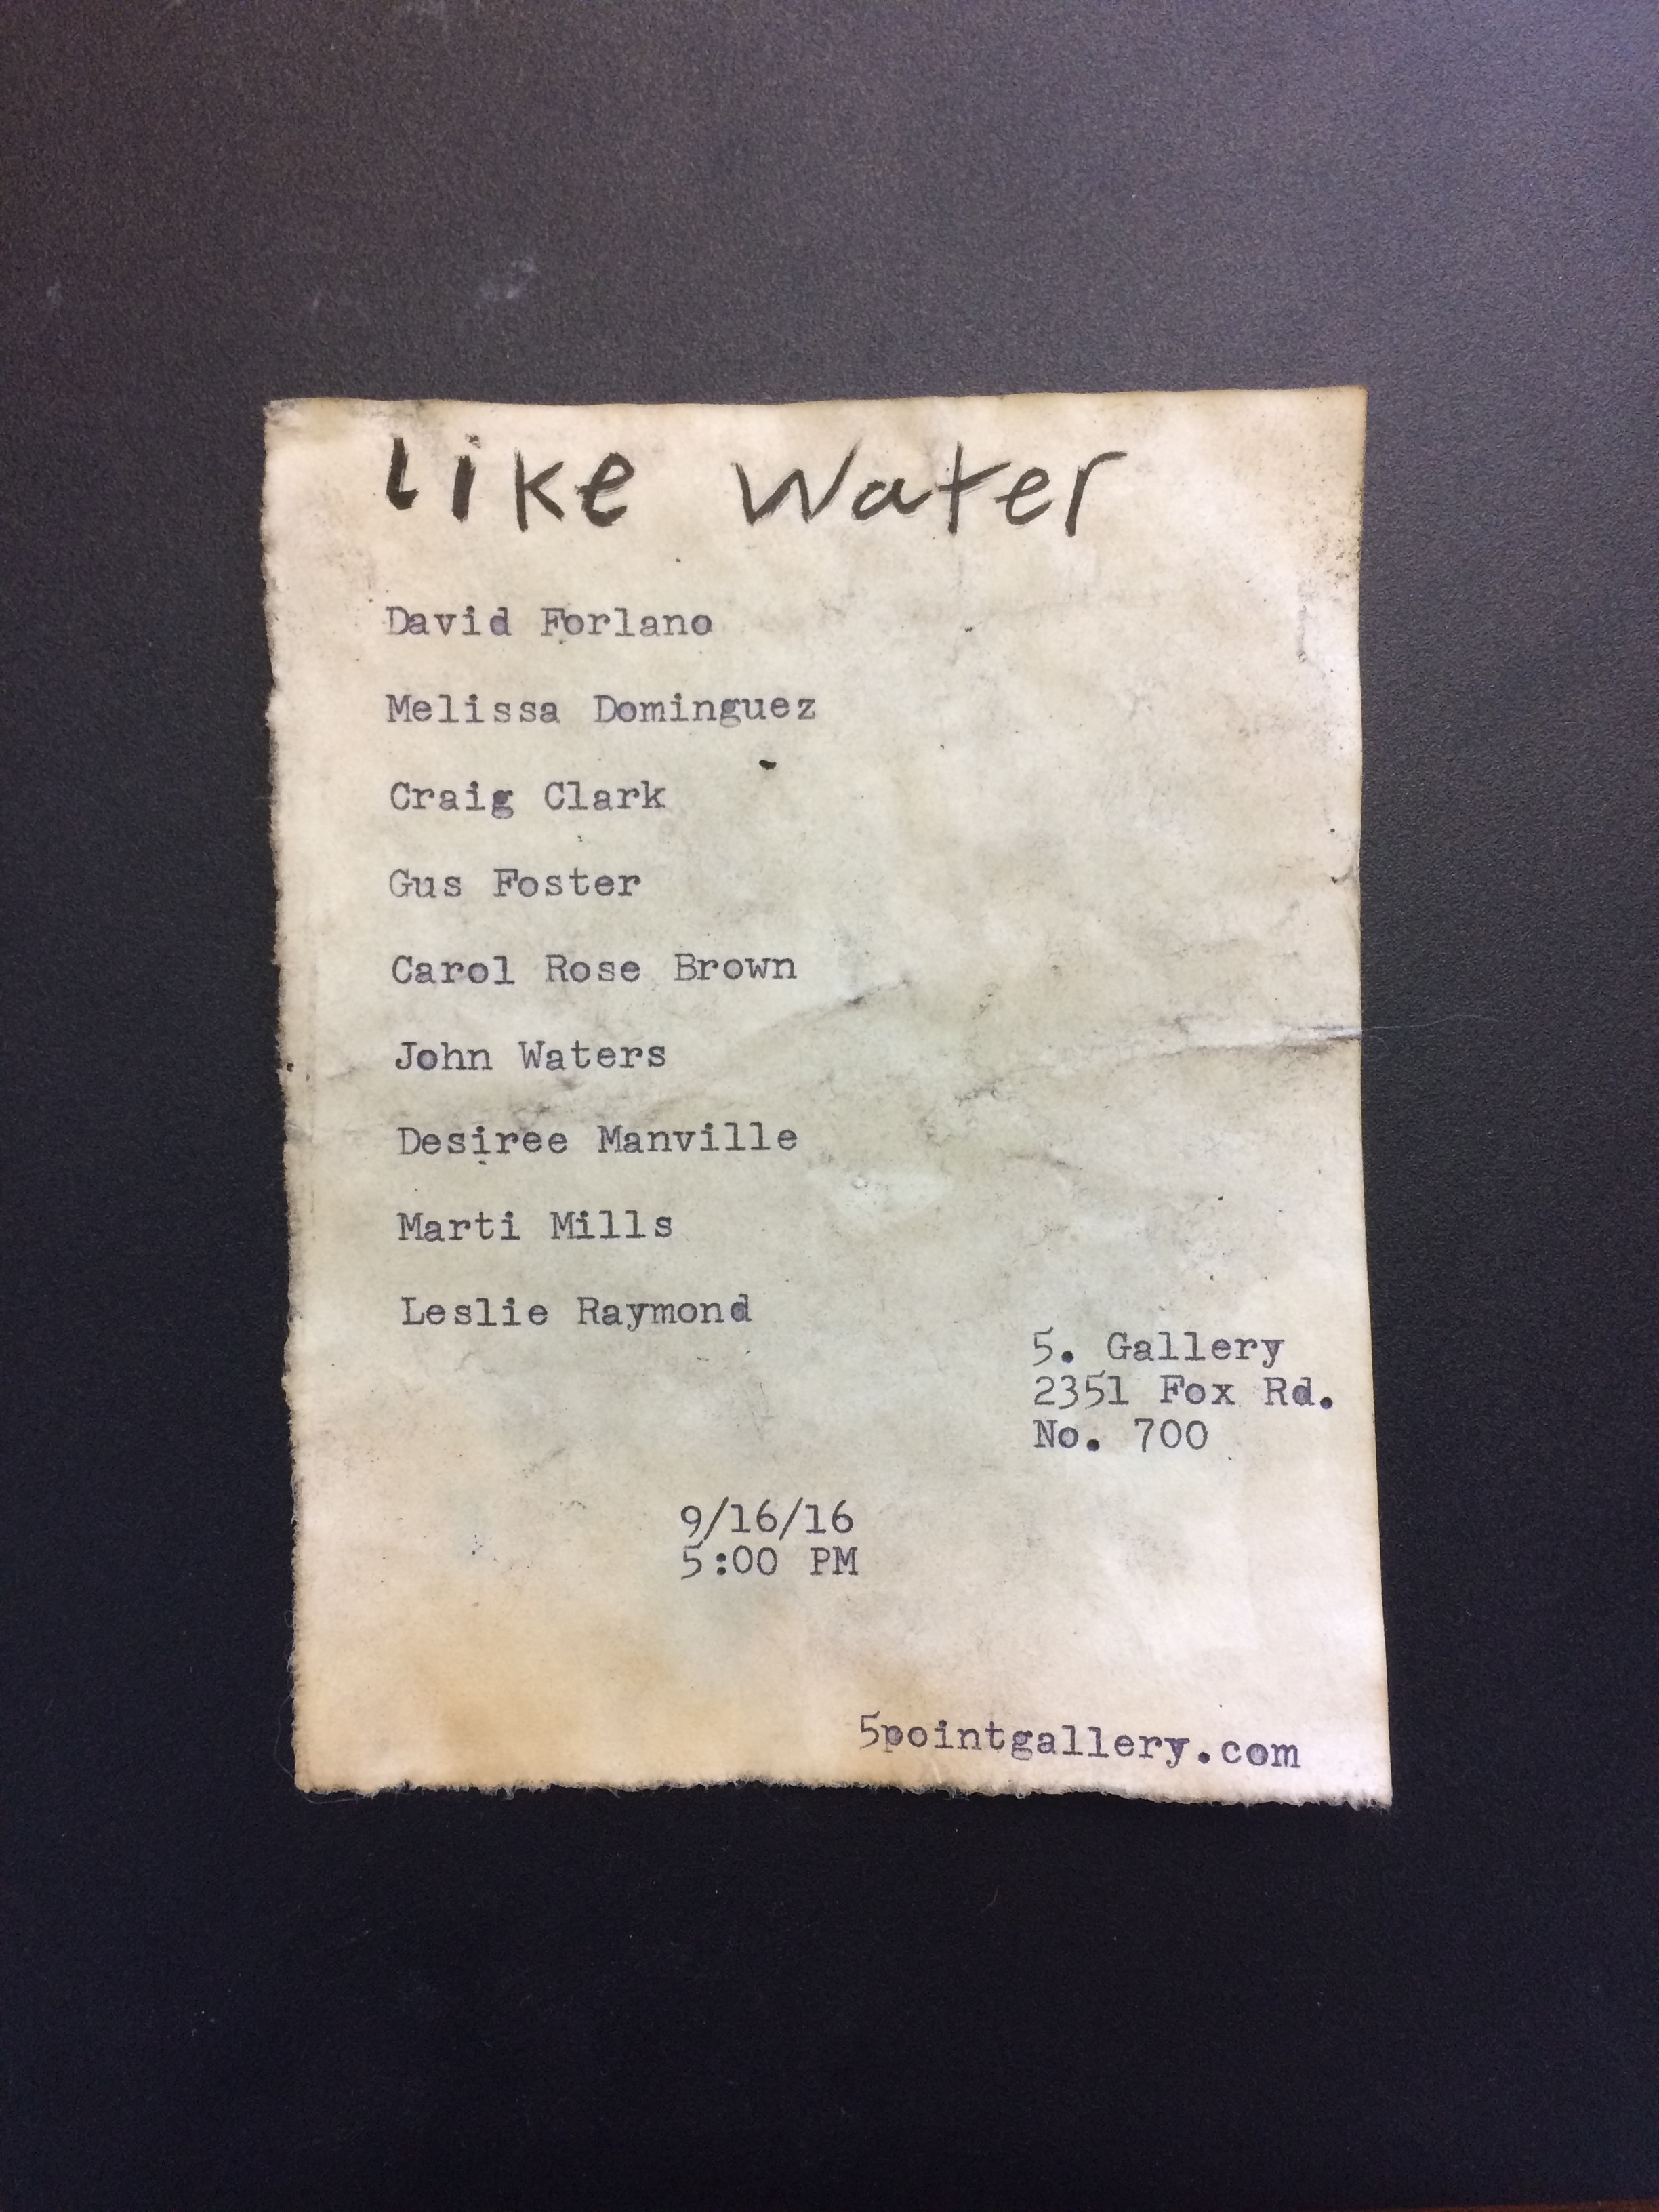 Like Water
David Forlano
Melissa Dominguez
Craig Clark
Gus Foster
Carol Rose Brown
John Waters
Desiree Manville
Marti Mills
Leslie Raymond
5. Gallery
2351 Fox Rd.
No. 700
9/16/16
5:00 PM
5pointgallery.com